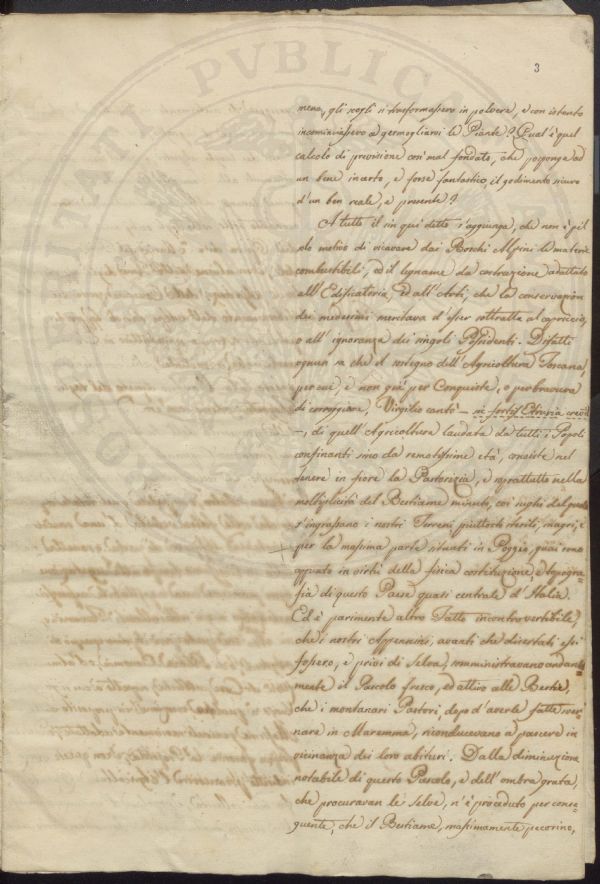 3
meno, gli scogli si trasformassero in polvere, e con istento
incominciassero a germogliarvi le Piante? Qual'è quel
calcolo di previsione così mal fondato, che posponga ad
un bene incerto, e forse fantastico, il godimento sicuro
d'un ben reale, e presente?
A tutto il in qui detto s'aggiunga, che non è pel
solo motivo di ricavare dai Boschi Alpini le materie
combustibili, ed il legname da costruzione adattato
all'Edificatoria, ed all'Arti, che la conservazion
dei medesimi meritava d'esser sottratta al capriccio,
o all'ignoranza dei singoli Possidenti. Difatti
ognun sa che il sostegno dell'Agricoltura Toscana,
per cui, e non già per Conquiste, o per bravura
di corseggiare, Virgilio cantò - sic fortis Etruria crevit
-, di quell'Agricoltura laudata da tutti i Popoli
confinanti sino da remotissime età, consiste nel
tenere in fiore la Pastorizia, e soprattutto nella
moltiplicità del Bestiame minuto, coi sughi del quale
s'ingrassano i nostri Terreni piuttosto sterili, magri, e
per la massima parte situati in Poggio, quai sono
appunto in virtù della fisica costituzione, e topogra-
fia di questo Paese quasi centrale d'Italia.
Ed è parimente altro Fatto incontrovertibile,
che i nostri Appennini, avanti che disertati essi
fossero, e privi di Selve, somministravano ondan-
mente il Pascolo fresco, ed attivo alle Bestie,
che i montanari Pastori, dopo d'averle fatte sver-
nare in Maremma, riconducevano a pascere in
vicinanza dei loro abituri. Dalla diminuzione
notabile di questo Pascolo, e dell'ombra grata,
che procuravan le Selve, n'è proceduto per conse-
guente, che il Bestiame, massimamente pecorino,